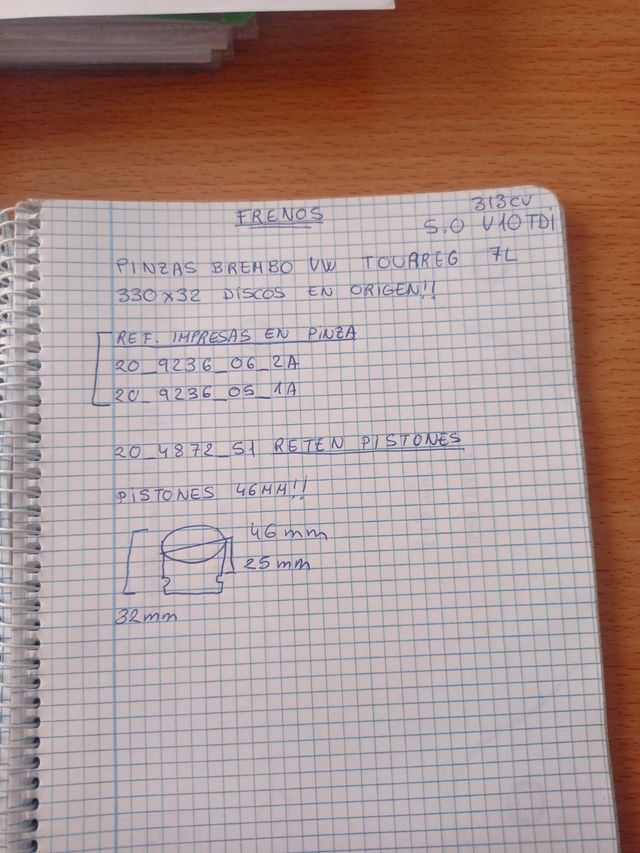 FRENOS
313CV
5.0 V10 TDI
PINZAS BREMBO VW TOUAREG 7L
330x32 DISCOS EN ORIGEN!!
REF. IMPRESAS EN PINZA
20_9236_06_2A
20_9236_05_1A
20_4872_51 RETEN PISTONES
PISTONES 46MM!!
46mm
25mm
32mm